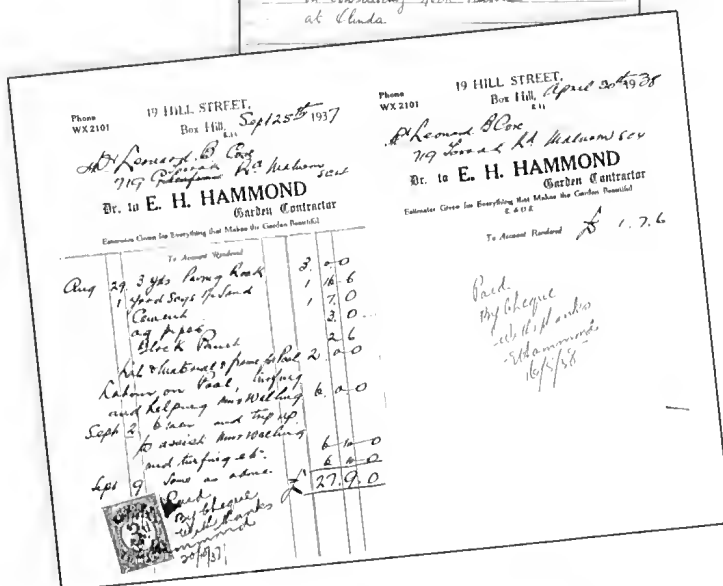 at Clinda
Phone
WX 2101
19 HILL STREET,
Box Hill, Sept 25th 1937
E.11
Dr Leonard B Cox
719 Toorak Rd Malvern SE4
Dr. to E. H. HAMMOND
Garden Contractor
Estimates Given for Everything that Makes the Garden Beautiful
To Account Rendered
Aug 29. 3 yds Paving Rock 3. 0-0
1 yard Scgs & Sand 1 16 6
Cement 1 7. 0
ag pipes 3. 0
Block Paint 2 6
material & frame for Pool 2 0-0
Labour on Pool, turfing
and helping Miss Walling 6. 0-0
Sept 2 6 men and trip up
to assist Miss Walling
and turfing etc. 6 10-0
Sept 9 Same as above. 6 10-0
£ 27. 9. 0
Paid
By Cheque
with thanks
Phone
WX 2101
19 HILL STREET,
Box Hill, April 30th 1938
E.11
Dr Leonard B Cox
719 Toorak Rd Malvern SE4
Dr. to E. H. HAMMOND
Garden Contractor
Estimates Given for Everything that Makes the Garden Beautiful
E & O E
To Account Rendered £ 1. 7. 6
Paid
By Cheque
with thanks
EHammond
16/5/38